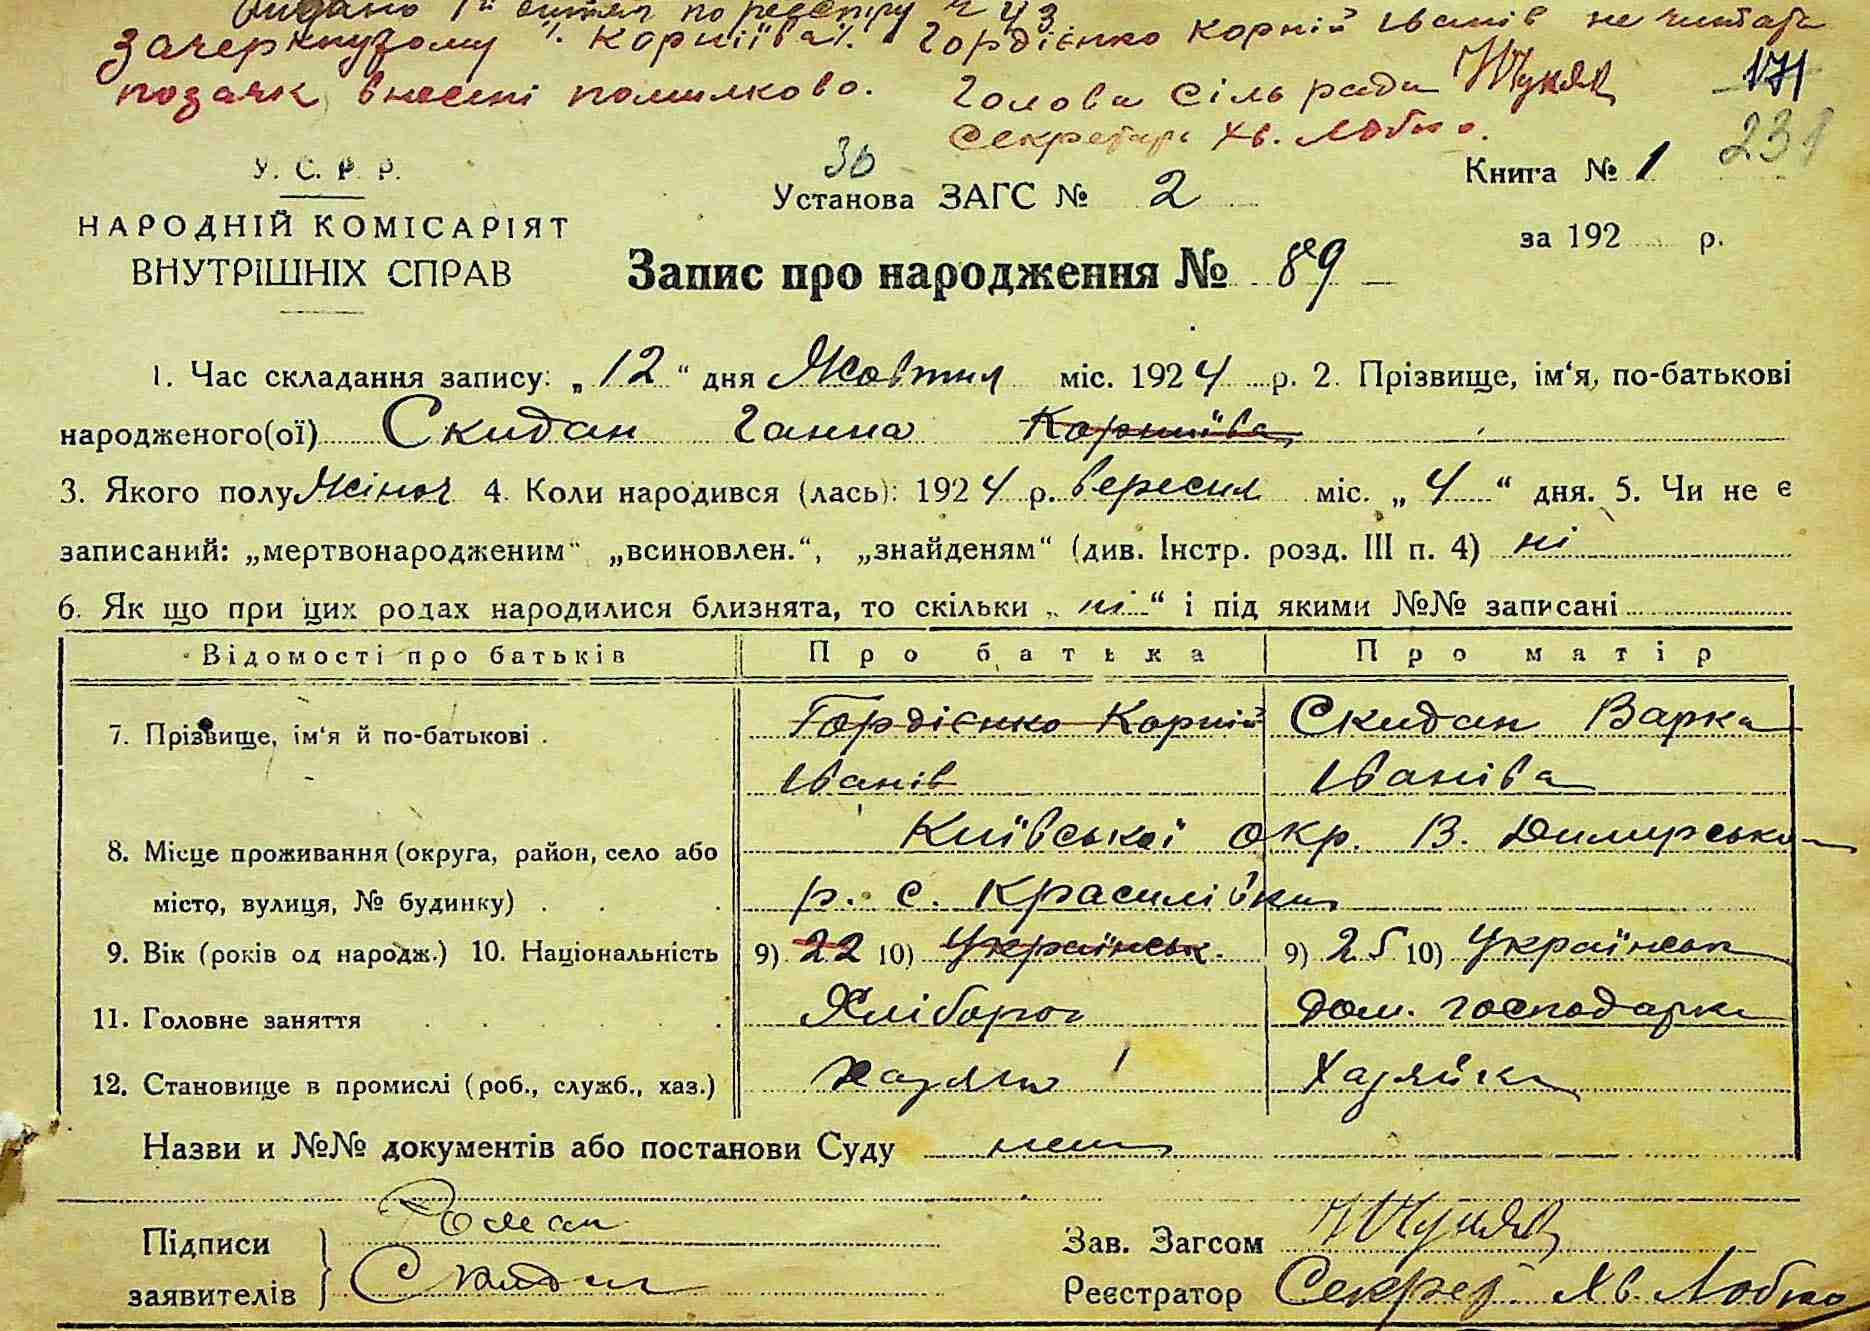 Видано 1й витяг по реєстру № 43
Зачеркнутому /. Корніїва/. Гордієнко Корній Іванів не читать
позаяк внесені помилково. Голова сільради
171
Секретарь Хв. Лобко.
231
У. С. Р. Р.
30
Книга № 1
Установа ЗАГС № 2
НАРОДНІЙ КОМІСАРІЯТ
за 192 р.
ВНУТРІШНІХ СПРАВ
Запис про народження № 89
1. Час складання запису: „12“ дня Жовтня міс. 1924 р. 2. Прізвище, ім‘я, по-батькові
народженого(ої) Скидан Ганна Корніїва
3. Якого полу жіноч 4. Коли народився (лась): 1924 р. вересня міс. „4“ дня. 5. Чи не є
записаний: „мертвонародженим“ „всиновлен.“, „знайденям“ (див. Інстр. розд. III п. 4) ні
6. Як що при цих родах народилися близнята, то скільки „ні“ і під якими №№ записані
Відомості про батьків Про батька Про матір
7. Прізвище, ім‘я й по-батькові . Гордієнко Корній Скидан Варка
Іванів Іваніва
8. Місце проживання (округа, район, село або Київської окр. В. Димирсько-
місто, вулиця, № будинку) . . . р. с. Красилівки
9. Вік (років од народж.) 10. Національність 9) 22 10) Українськ. 9) 25 10) Українськ
11. Головне заняття . . . . . Хлібороб дом. господарка
12. Становище в промислі (роб., служб., хаз.) Хазяїн Хазяйка
Назви и №№ документів або постанови Суду нема
Підписи Роман
Зав. Загсом
заявителів Скидан
Реєстратор Секрет Хв. Лобко